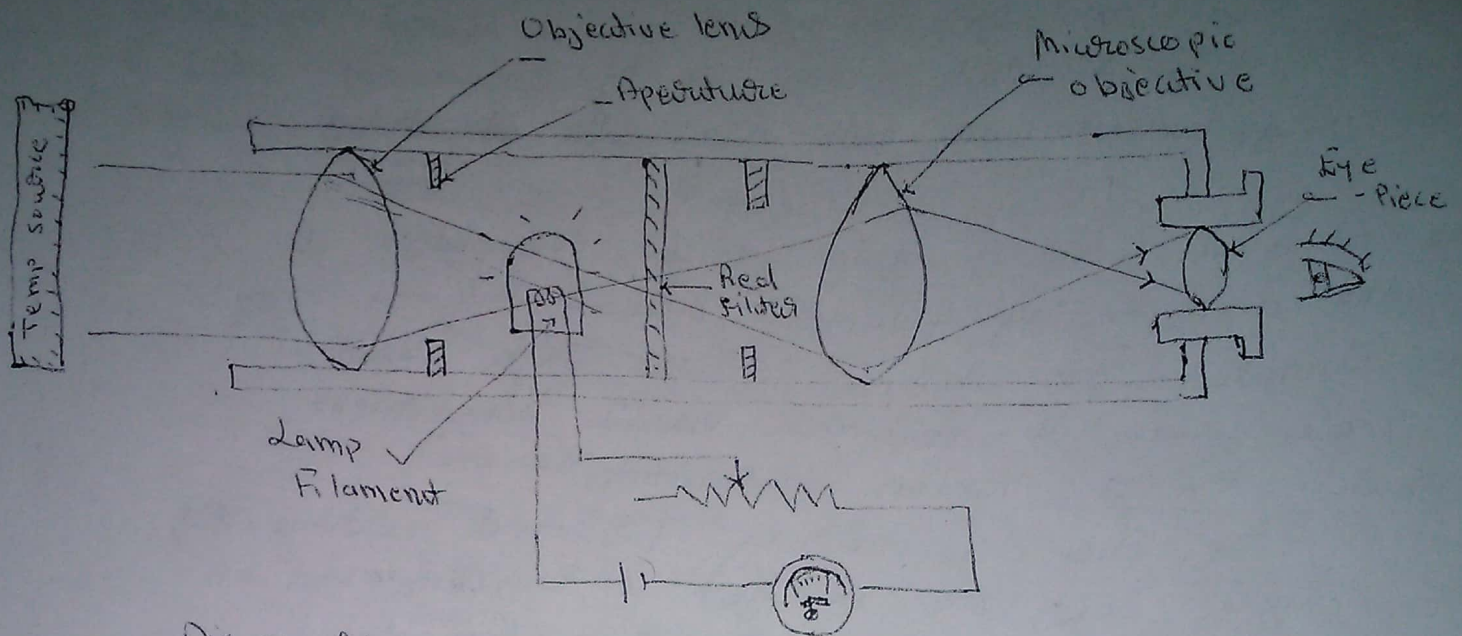 Objective lens
Aperture
Microscopic
objective
Temp source
Eye
-Piece
Red
filter
Lamp
Filament